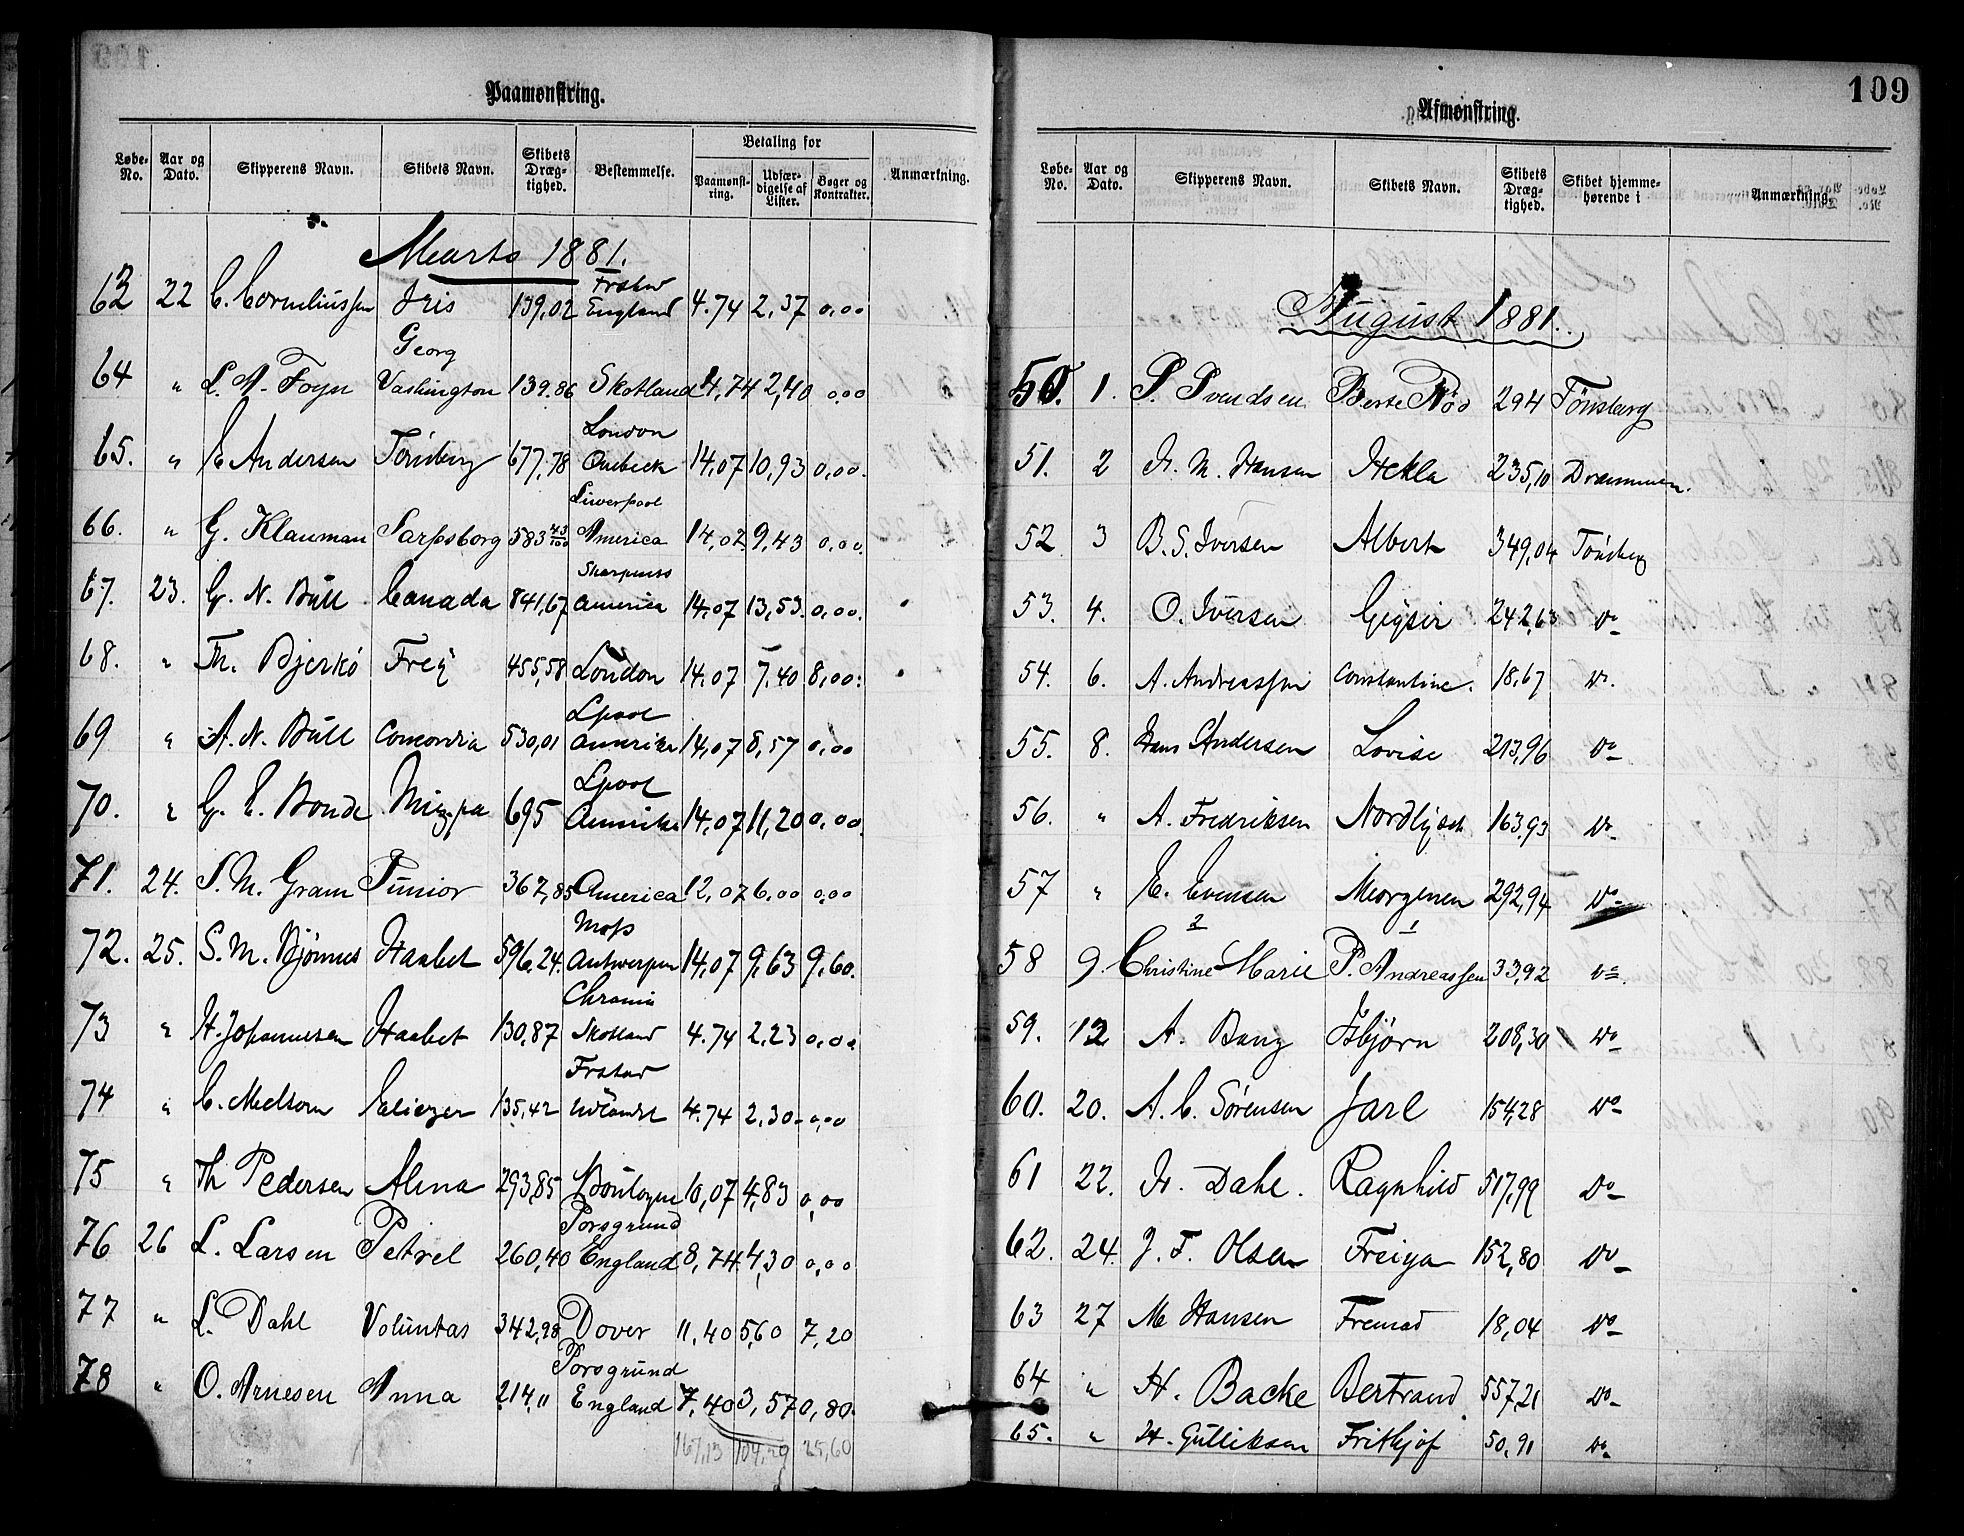 Paamønstring.
Løbe-No. Aar og Dato. Skipperens Navn. Skibets Navn. Skibets Dræg-tighed. Bestemmelse. Betaling for Paamønst-ring. Udfær-digelse af Lister. Bøger og Kontrakter. Anmærkning.
Marts 1881.
63 22 C. Corneliussen Iris 139,02 Frstad England 4.74 2,37 0,00
64 " L. A. Foyn Georg Washington 139.86 Skotland 4,74 2,40 0,00
65. " E Andersen Tönsberg 677,78 London Quebeck 14,07 10,93 0,00.
66. " G. Klauman Sarpsborg 583 43/100 Liverpool America 14,07 9,43 0,00.
67. 23. G. N. Bull Canada 841,67 America 14,07 13,53. 0,00.
68. " Th. Bjerkö Freÿ 455,58 London 14,07 7,40 8,00.
69 " A. N. Bull Concordia 530,01 Lpool Amerika 14,07 8,57 0,00
70. " G. E. Bonde Mizpa 695 Lpool Amerika 14,07 11,20 0,00.
71. 24. S. M. Gram Junior 367,85 America 12,07 6,00 0,00
72. 25. S. M. Bjönnes Haabet 596,24. Moss Antwerpen 14,07 9,63 9,60.
73 " H. Johannesen Haabet 130,87 Chrania Skotland 4.74 2,23 0,00.
74 " C. Melsom Eliezer 135,42 Frstad Udlandet 4.74 2,30 0,00
75 " Th Pedersen Alma 293,85 Boulogne 10,07 4,83 0,00
76 26 L. Larsen Petrel 260,40 Porsgrund England 8,74 4,30 0,00
77 " L. Dahl Voluntas 342,98 Dover 11,40 5,60 7,20
78 " O. Arnesen Anna 214,11 Porsgrund England 7,40 3,57 0,80.
167,13 104,29 25,60
109
Afmønstring.
Løbe-No. Aar og Dato. Skipperens Navn. Skibets Navn. Skibets Dræg-tighed. Skibet hjemme-hørende i Anmærkning.
August 1881.
50. 1. S. Svendsen Berte Röd 294 Tönsberg
51. 2 H. M. Hansen Hekla 235,10 Drammen.
52 3 B. S. Iversen Albert 349,04 Tönsberg
53. 4. O. Iversen Geysir 242,63 Do
54. 6. A. Andreassen Constantine. 18,67 Do.
55. 8. Hans Andersen Lovise 213,96 Do
56. " A. Fredriksen Nordlyset 163,93 Do
57 " E. Evensen Morgenen 292,94 Do
58 9. 2 Christine Marie 1 P. Andreassen 33,92 Do.
59. 12 A. Bang Isbjørn 208,30 Do
60. 20. A. C. Sørensen Jarl 154,28 Do
61 22. Dahl. Ragnhild 517,99 Do
62. 24. J. F. Olsen Freiya 152,80 Do
63 27 M Hansen Fremad 18,04 Do
64 " H. Backe Bertrand 557,21 Do
65. " H. Gulliksen Frithjof 50,91 Do